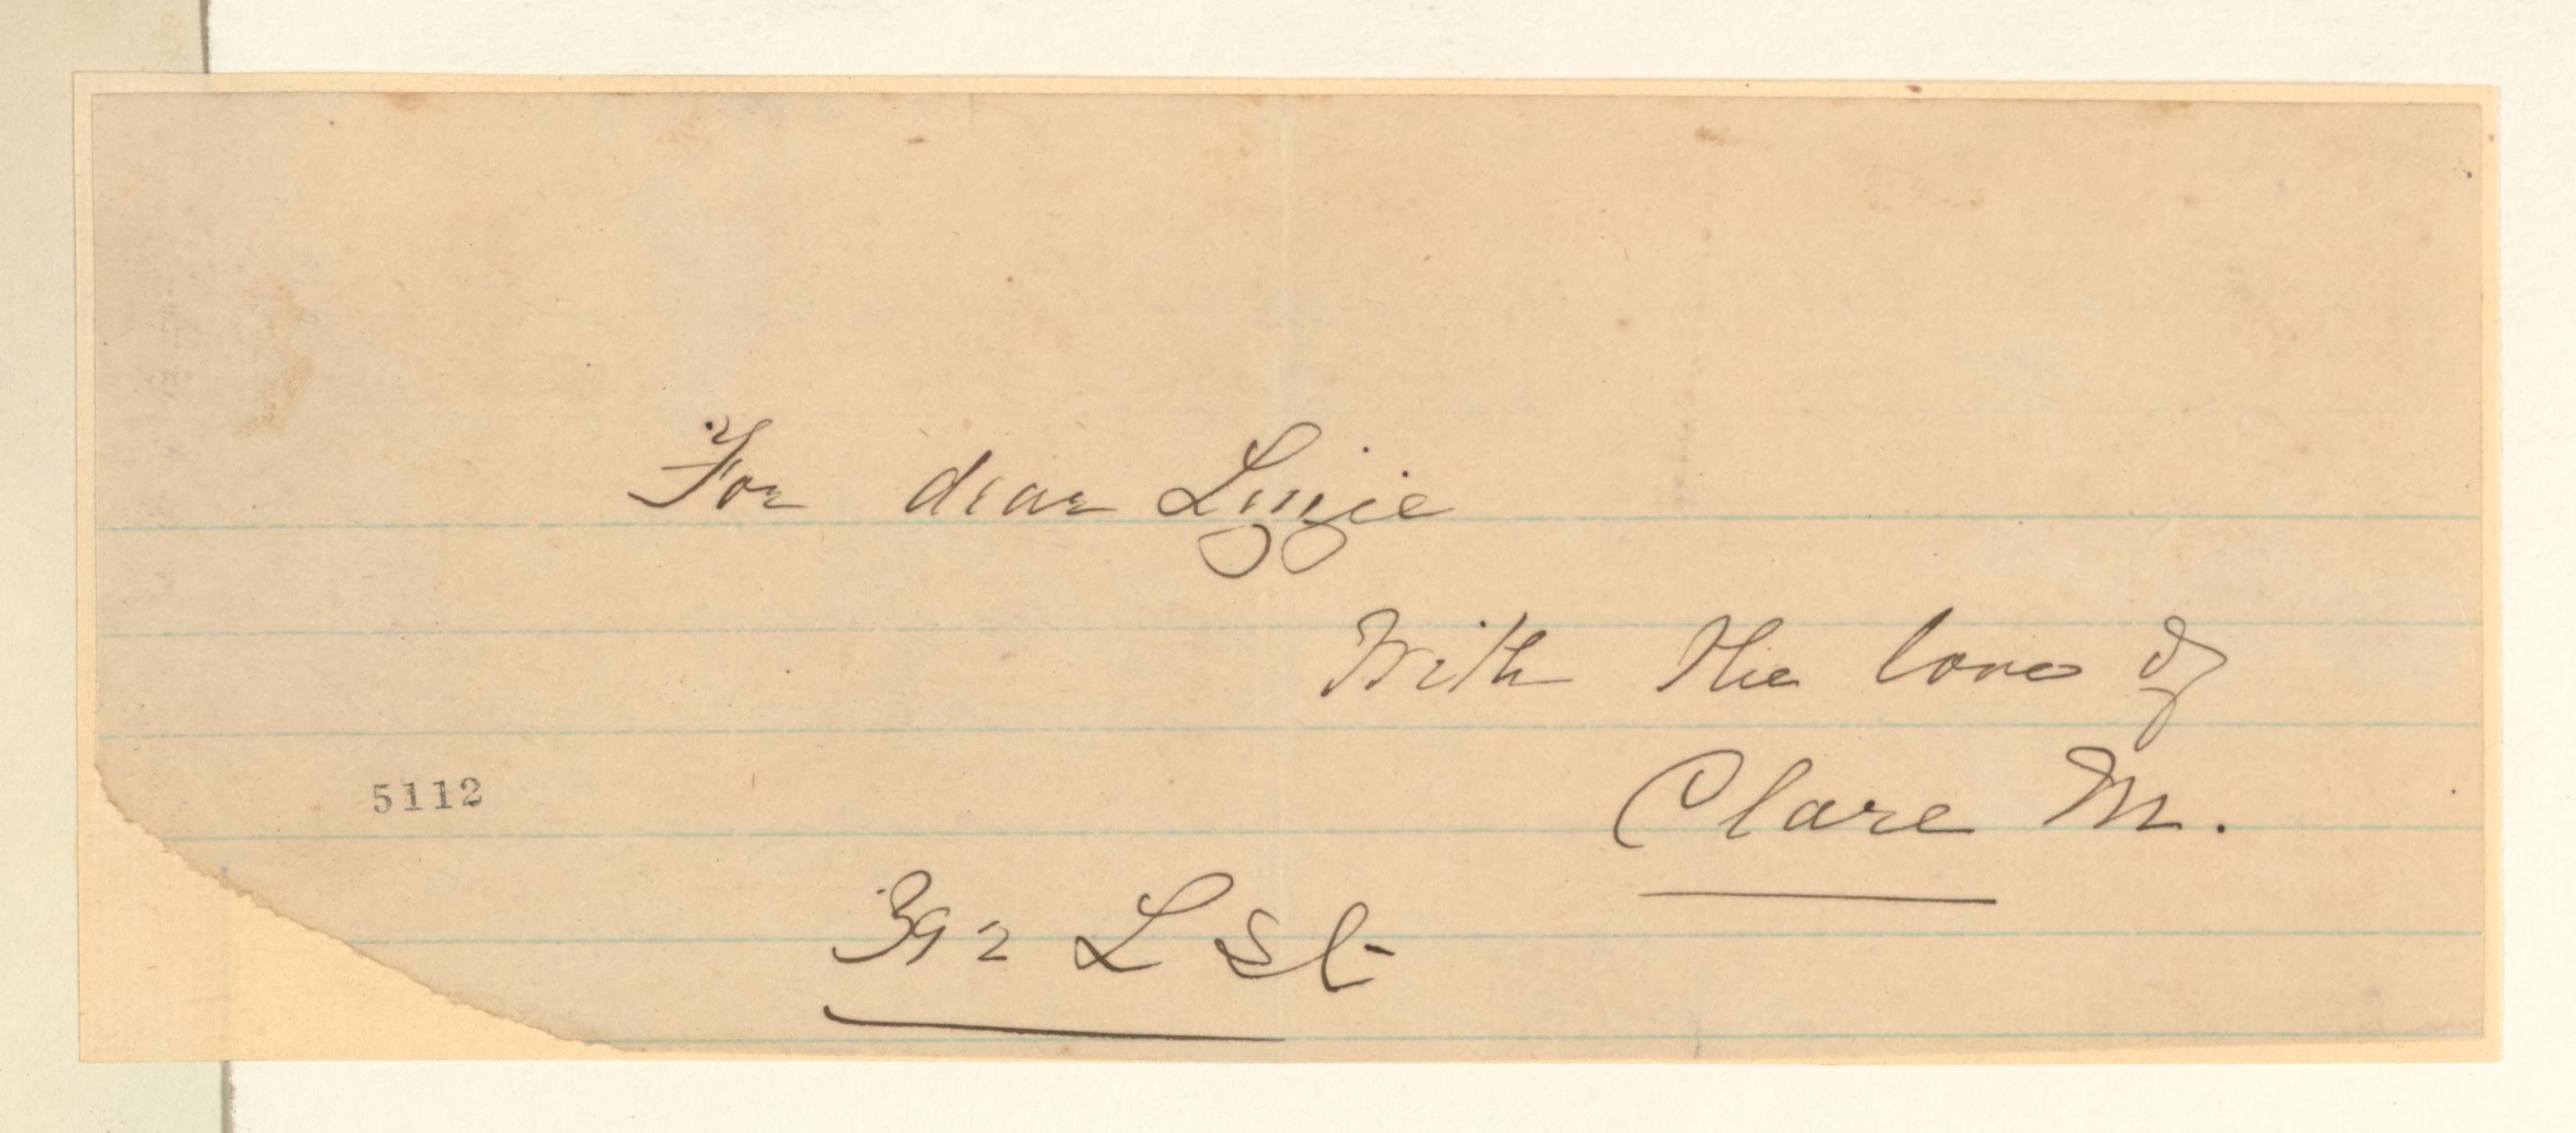 For dear Lizzie
With the love of
Clare M.
5112
392 L St-